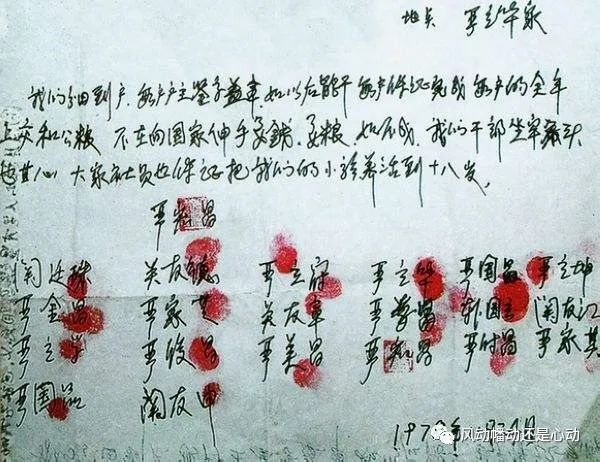 地点 严立华家
我们分田到户.每户户主签字盖章.如以后能干每户保证完成每户的全年
上交和公粮 不在向国家伸手要钱.要粮.如不成.我们干部坐牢杀头
也甘心.大家社员也保证把我们的小孩养活到十八岁.
严宏昌
关廷珠 关友德 严立符 严立华 严国昌 严立坤
严金昌 严家芝 关友章 严学昌 韩国云 关友江
严立学 严俊昌 严美昌 严宏昌 严付昌 严家其
严国品 关友申
1978年
风动幡动还是心动